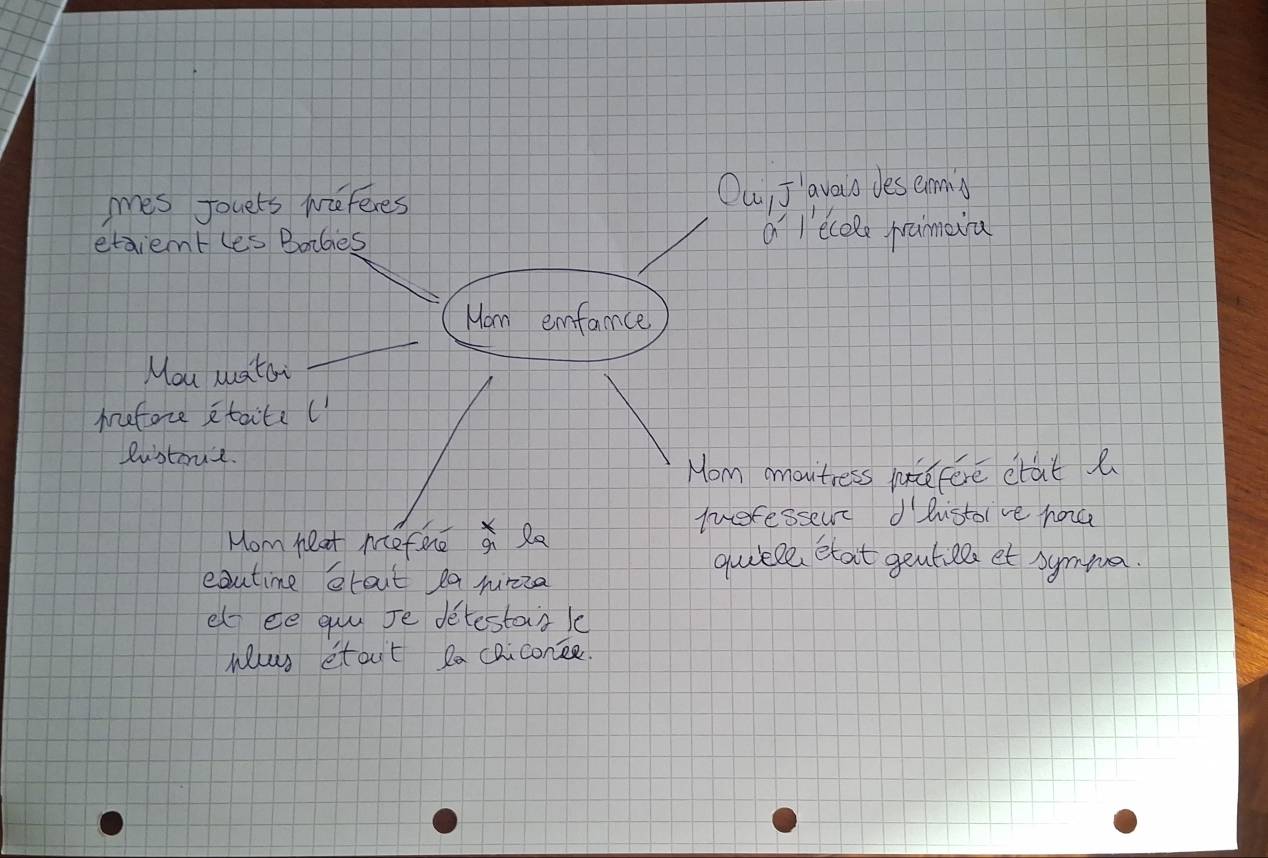 Mon enfance
Mes jouets préférés
étaient les Barbies
Oui, J'avais des amis
á l'école primaire
Mon
préfére étaite l'
histoire.
Mon plat préféré à la
cautine était la pizza
et ce que je détestais le
plus était la chicorée.
Mon maitress préféré était le
professeur d'histoire parce
qu'elle était gentille et sympa.